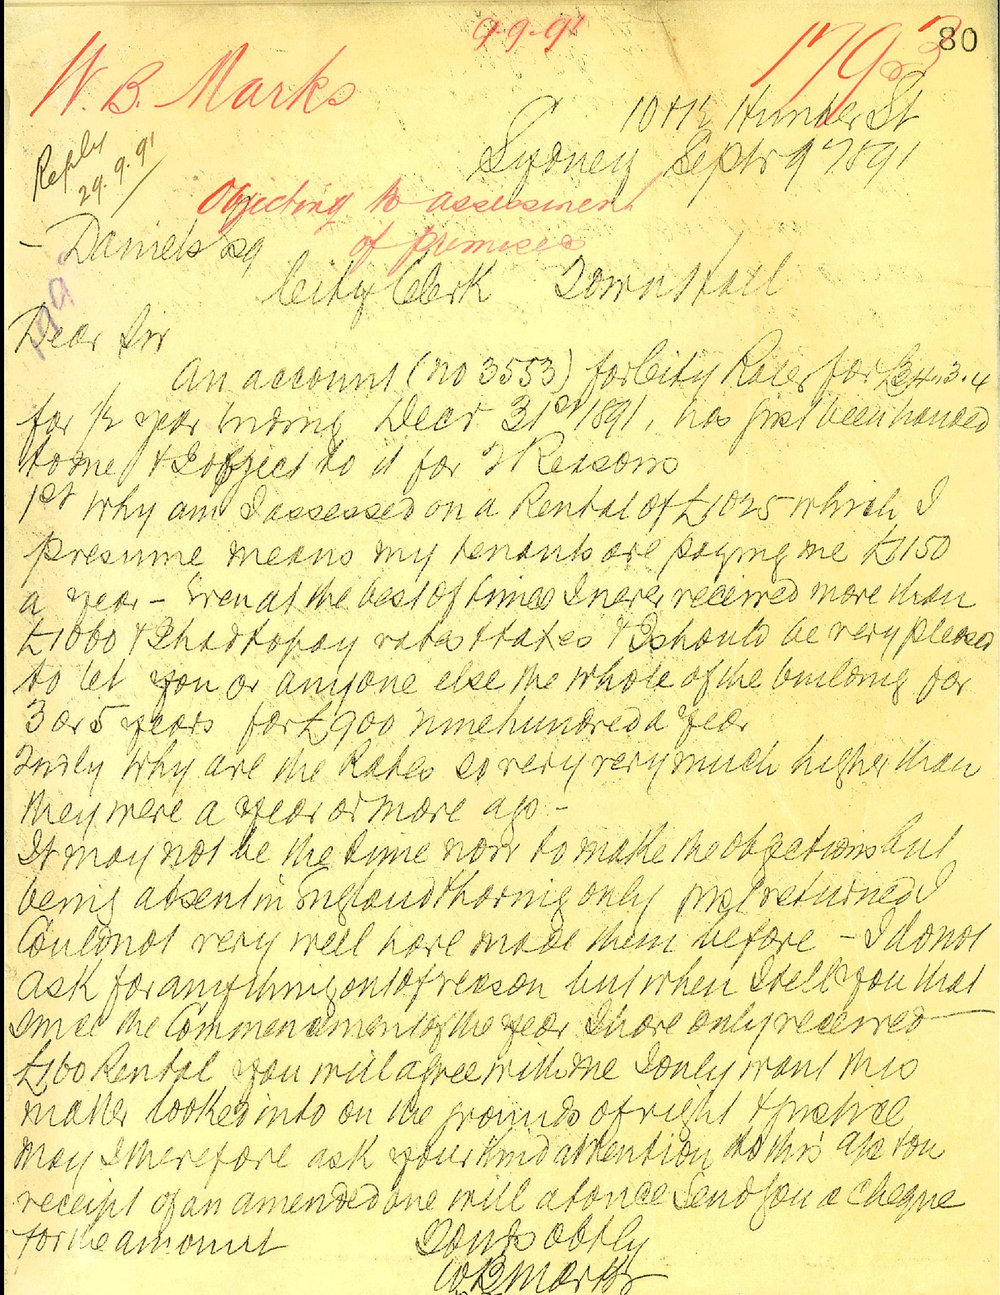 9.9.91
80
W. B. Marks
1793
10 & 12 Hunter St
Sydney Septr 9 1891
Reply
29.9.91
Objecting to assessment
of premises
– Daniels Esq
City Clerk Town Hall
Dear Sir
An account (no 3553) for City Rates for £34.3.4
for ½ year Ending Decr 31st 1891, has just been handed
to me & I object to it for 2 Reasons
1st Why am I assessed on a Rental of £1025 which I
presume means my tenants are paying me £1150
a year – Even at the best of times I never received more than
£1060 & I had to pay rates & taxes & I should be very pleased
to let you or anyone else the whole of the building for
3 or 5 years for £900 nine hundred a year
2ndly Why are the Rates so very very much higher than
they were a year or more ago –
It may not be the time now to make the objections but
being absent in England & having only just returned I
Could not very well have made them before – I do not
ask for anything out of reason but when I tell you that
since the Commencement of the year I have only received
£160 Rental you will agree with me I only want this
matter looked into on the grounds of right & justice
may I therefore ask your kind attention to this & upon
receipt of an amended one will at once Send you a cheque
for the amount
Yours obtly
W B Marks